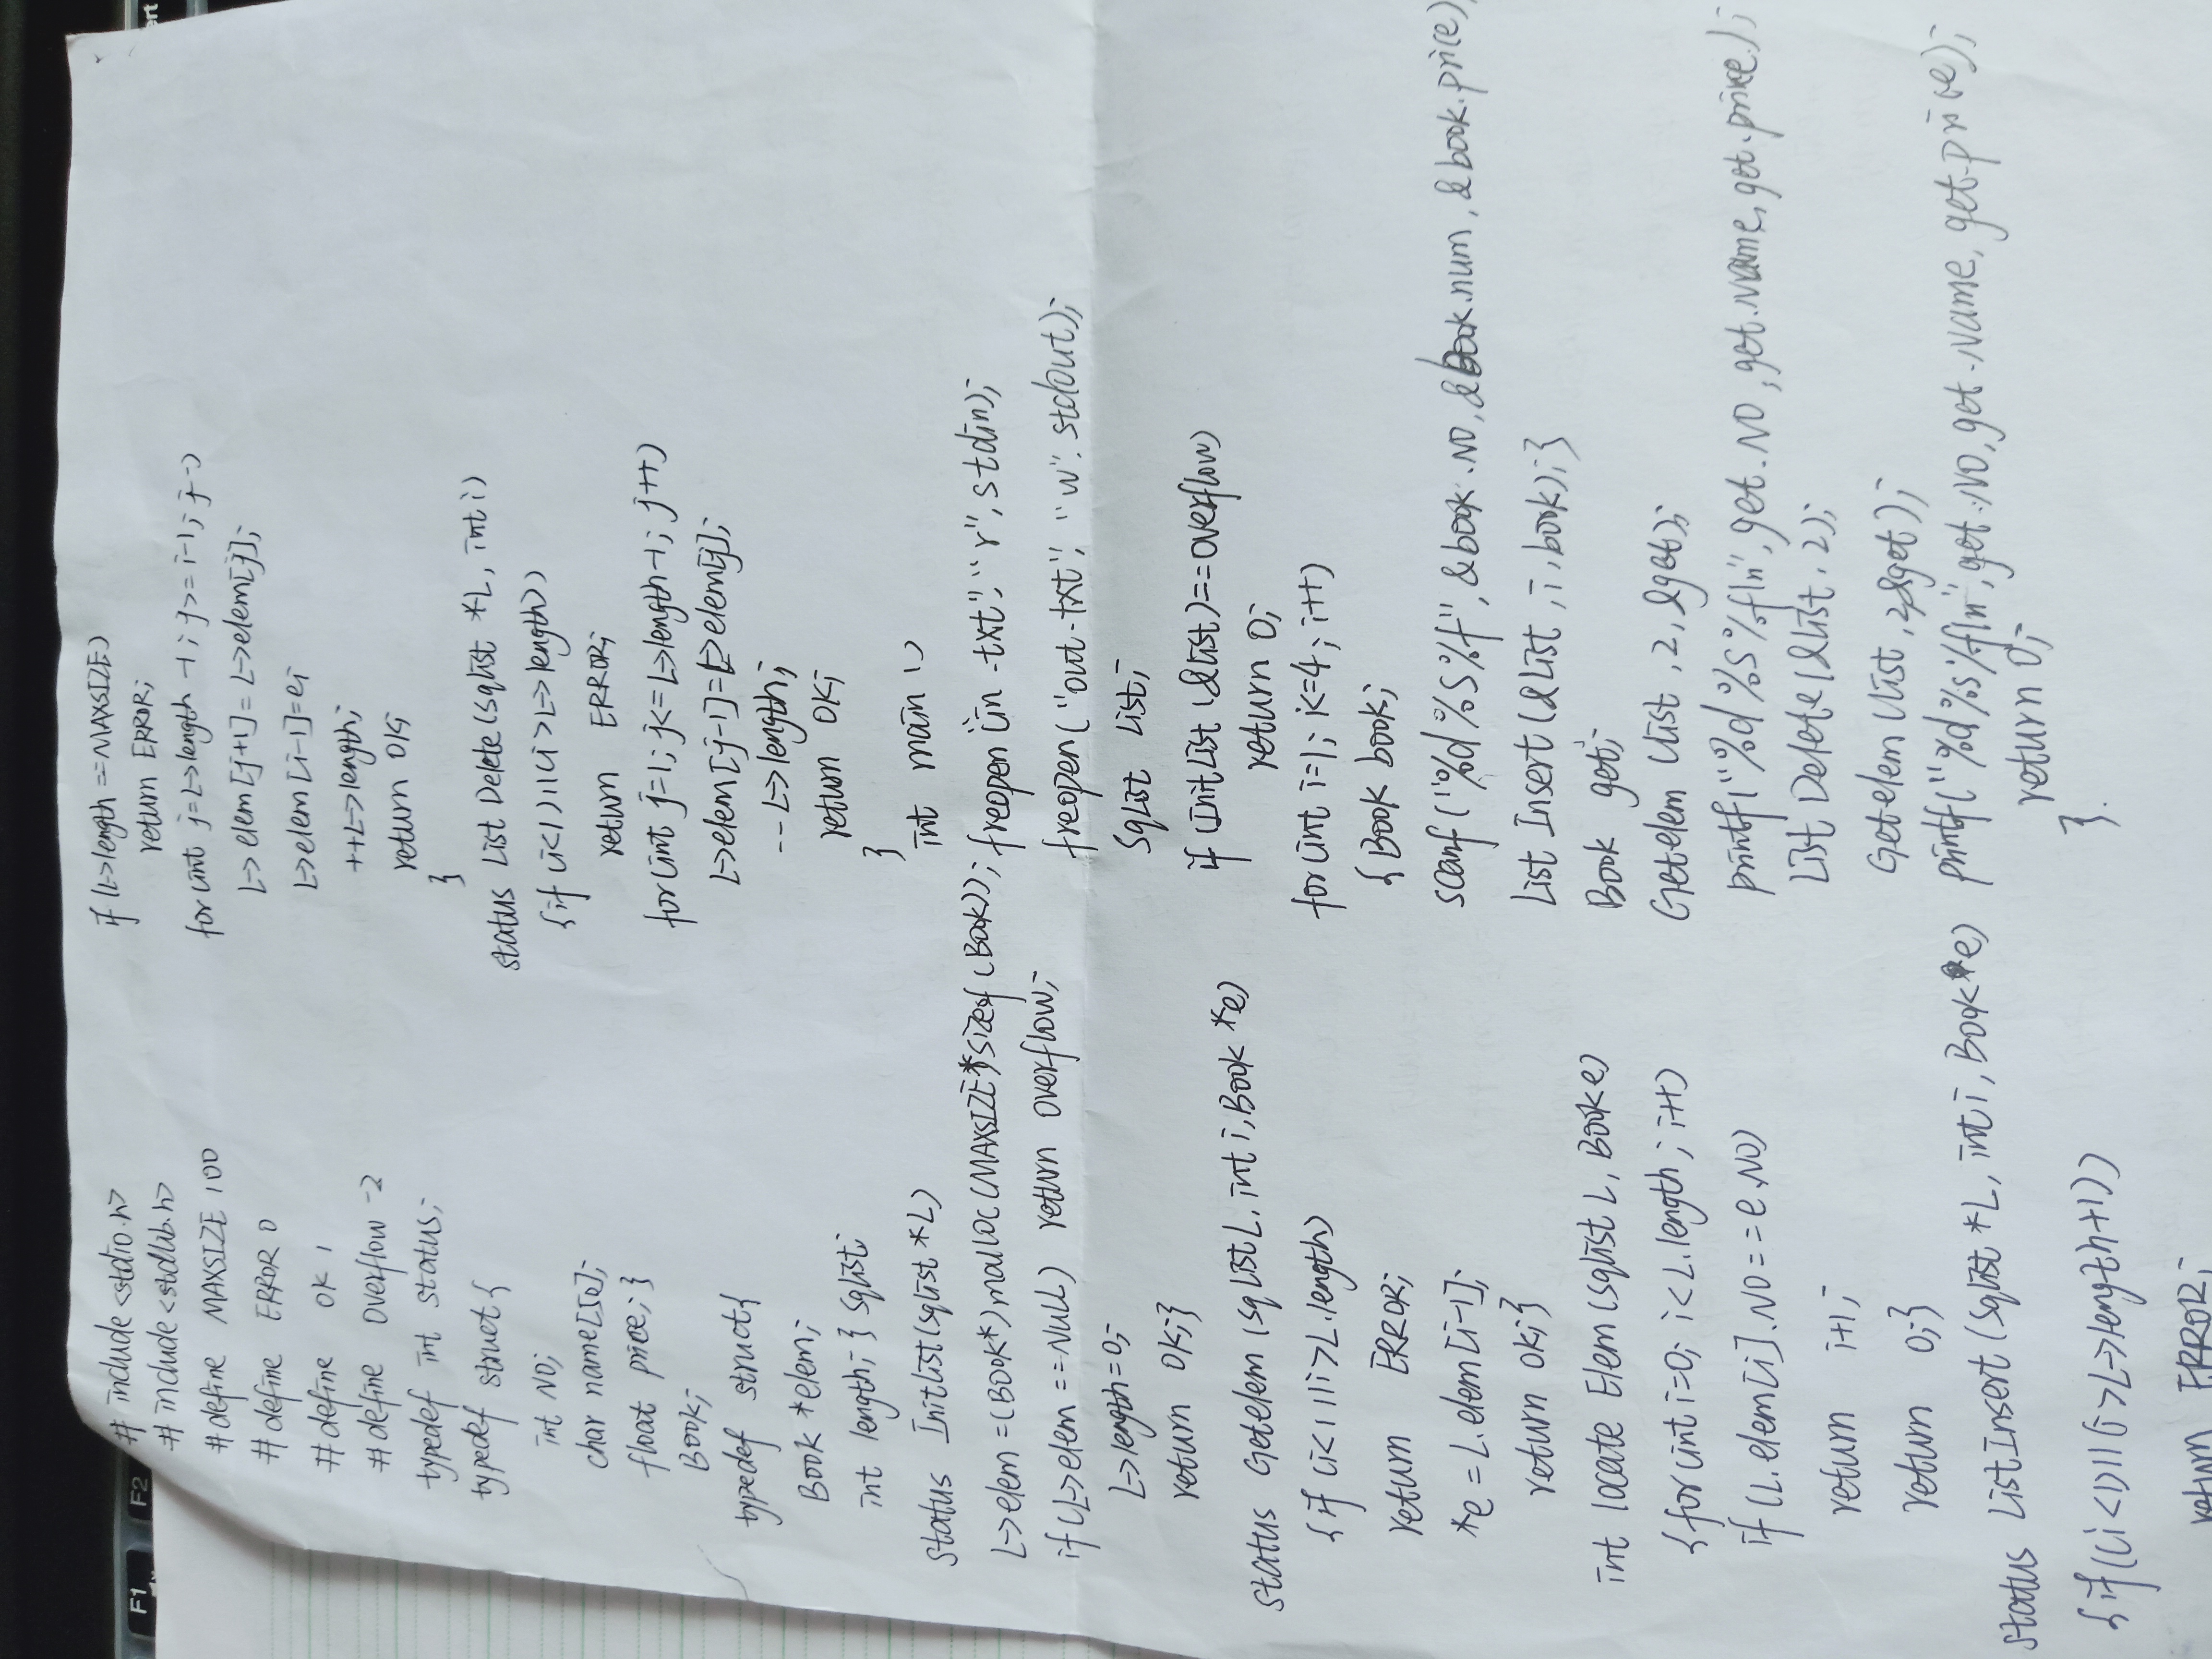 # include <stdio.h>
# include <stdlib.h>
# define MAXSIZE 100
# define ERROR 0
# define OK 1
# define Overflow -2
typedef int status;
typedef struct {
int NO;
char name[50];
float price; }
Book;
typedef struct {
Book *elem;
int length; } sqlist
status Initlist(sqlist *L)
L->elem = (Book*) malloc (MAXSIZE*sizeof (Book));
if (L->elem == Null) return overflow;
L->length=0;
return OK; }
status Getelem (sqlist L, int i, Book *e)
{ if (i<1||i>L.length)
return ERROR;
*e = L.elem[i-1];
return OK; }
int locate Elem (sqlist L, Book e)
{ for (int i=0; i<L.length; i++)
if (L.elem[i].NO == e.NO)
return i+1;
return 0; }
status ListInsert (sqlist *L, int i, Book *e)
{ if ((i<1)||(i>L->length+1))
return ERROR;
if (L->length == MAXSIZE)
return ERROR;
for (int j=L->length -1; j>=i-1; j--)
L->elem[j+1] = L->elem[j];
L->elem[i-1]=e;
++L->length;
return OK;
}
status List Delete (sqlist *L, int i)
{ if (i<1)||(i>L->length))
return ERROR;
for (int j=i; j<=L->length-1; j++)
L->elem[j-1]=L->elem[j];
--L->length;
return OK;
}
int main ()
freopen (in.txt", "r", stdin);
freopen ("out.txt", "w". stdout);
SqList List;
if (InitList (&list)==overflow)
return 0;
for (int i=1; i<=4; i++)
{ Book book;
scanf ("%d%s%f", &book.NO, &book.num, &book.price);
List Insert (&List, i, book); }
Book get;
Getelem (list, 2, &get);
printf ("%d%s%f\n", get.NO, get.name, get.price);
List Delete (&list, 2);
Getelem (list, 2,&get);
printf ("%d%s%f\n", get.NO, get.name, get.price);
return 0;
}